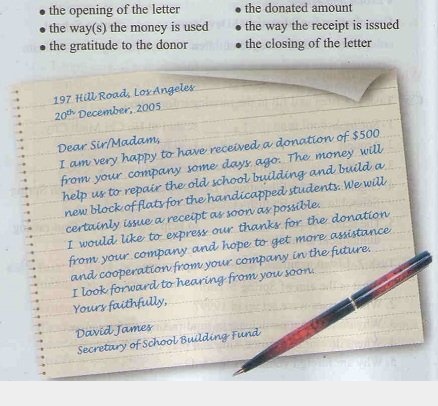 • the opening of the letter
• the donated amount
• the way(s) the money is used
• the way the receipt is issued
• the gratitude to the donor
• the closing of the letter
197 Hill Road, Los Angeles
20th December, 2005
Dear Sir/Madam,
I am very happy to have received a donation of $500
from your company some days ago. The money will
help us to repair the old school building and build a
new block of flats for the handicapped students. We will
certainly issue a receipt as soon as possible.
I would like to express our thanks for the donation
from your company and hope to get more assistance
and cooperation from your company in the future.
I look forward to hearing from you soon.
Yours faithfully,
David James
Secretary of School Building Fund